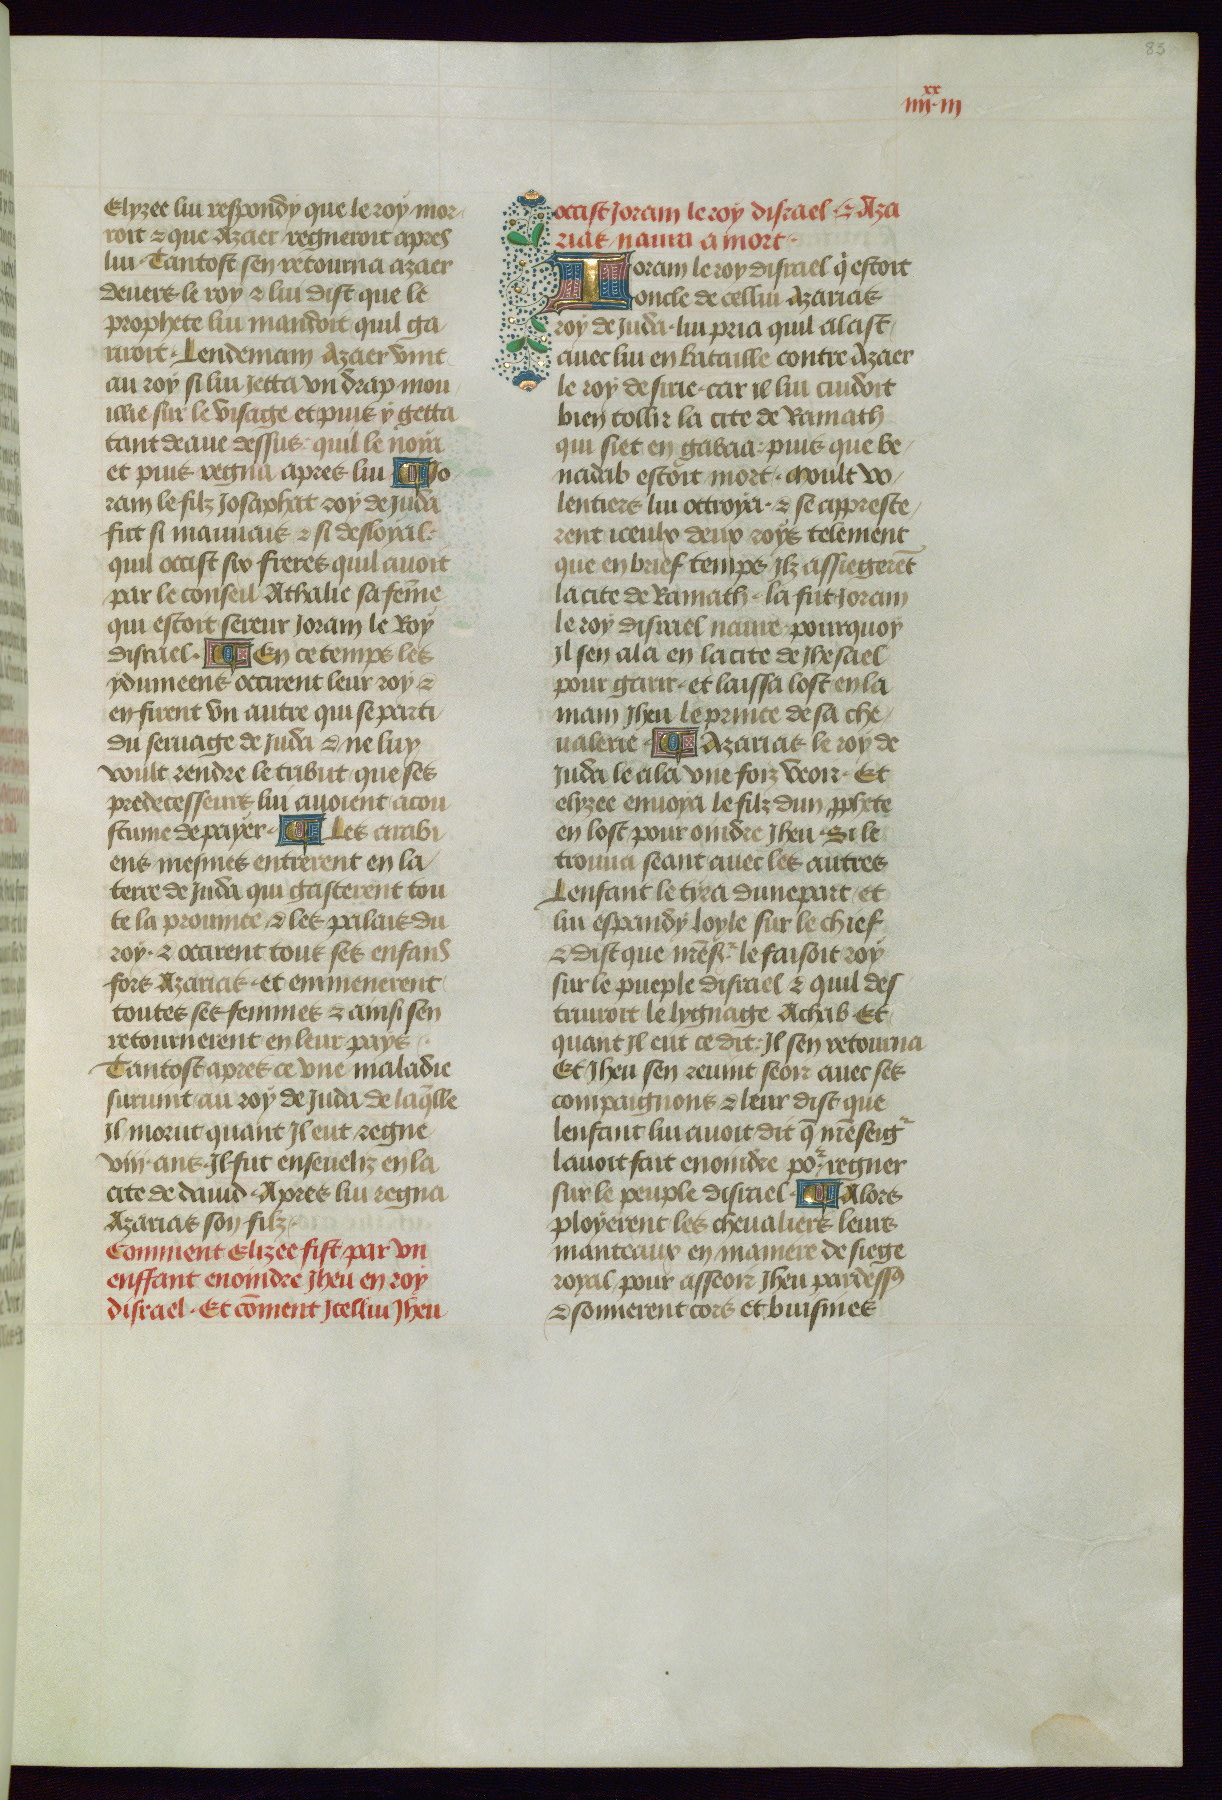 85
iiii·iii
xx
Elyzee lui respondy que le roy mor
roit & que Azaer regneroit apres
lui · Tantost sen retourna azaer
deuers le roy & lui dist que le
prophete lui mandoit quil ga
riroit · Lendemain Azaer vint
au roy si lui Jetta vn drap mou
illie sur le visage et puis y getta
tant deaue dessus · quil le noya
et puis regna apres lui ¶ Jo
ram le filz Josaphat roy de Juda
fut si mauuais & si desloyal ·
quil occist six freres quil auoit
par le conseil Athalie sa fem̄e
qui estoit sereur Joram le Roy
disrael · ¶ En ce temps les
ydumeens occirent leur roy &
en firent vn autre qui se parti
du seruage de Juda & ne luy
voult rendre le tribut que ses
predecesseurs lui auoient acou
stume de payer · ¶ Les arabi
ens mesmes entrerent en la
terre de Juda qui gasterent tou
te la prouince & les palais du
roy · & occirent tous ses enfans
fors Azarias · et emmenerent
toutes ses femmes & ainsi sen
retournerent en leur pays
Tantost apres ce vne maladie
suruint au roy de Juda de laq̄lle
Il morut quant Il eut regne
viii · ans · Il fut enseueliz en la
cite de dauid · Apres lui regna
Azarias son filz ·
Comment Elizee fist par vn
enffant enoindre Jheu en roy
disrael · Et com̄ent Jcellui Jheu
occist Joram le roy disrael & Aza
rias naura a mort ·
Ioram le roy disrael q̇ estoit
oncle de cellui Azarias
roy de Juda · lui pria quil alast
auec lui en bataille contre Azaer
le roy de sirie · car il lui cuidoit
bien tollir la cite de Ramath
qui siet en gabaa : puis que be
nadab estoit mort · Moult vo
lentiers lui octroya · & se appreste
rent iceulx deux roys telement
que en brief temps Ilz assiegerēt
la cite de Ramath · la fut Joram
le roy disrael naure pourquoy
Il sen ala en la cite de Jhesael
pour garir · et laissa lost en la
main Jheu le prince de sa che
ualerie · ¶ Azarias le roy de
Juda le ala vne foiz veoir · Et
elyzee enuoya le filz dun ꝓphete
en lost pour oindre Jheu · Si le
trouua seant auec les autres
Lenfant le tyra dune part et
lui espandy loyle sur le chief
& dist que mēsʳ le faisoit roy
sur le pueple disrael & quil des
truiroit le lygnage Achab Et
quant Il eut ce dit : Il sen retourna
Et Jheu sen reuint seoir auec ses
compaignons & leur dist que
lenfant lui auoit dit q̄ mēseigʳ
lauoit fait enoindre poʳ regner
sur le peuple disrael · ¶ Alors
ployerent les cheualiers leurs
manteaux en maniere de siege
royal pour asseoir Jheu pardessꝰ
& sonnerent cors et buisines